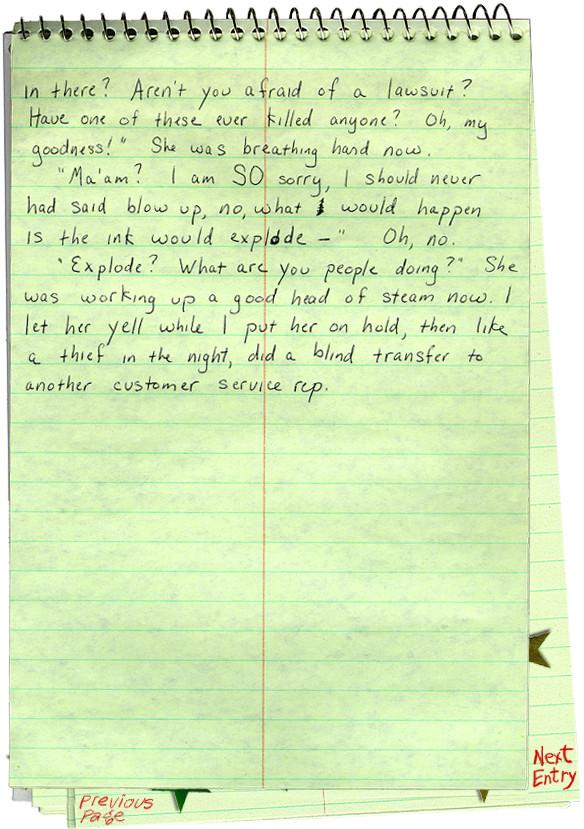 in there? Aren't you afraid of a lawsuit?
Have one of these ever killed anyone? Oh, my
goodness!" She was breathing hard now.
"Ma'am? I am SO sorry, I should never
had said blow up, no, what I would happen
is the ink would explode –" Oh, no.
"Explode? What are you people doing?" She
was working up a good head of steam now. I
let her yell while I put her on hold, then like
a thief in the night, did a blind transfer to
another customer service rep.
Next
Entry
Previous
Page